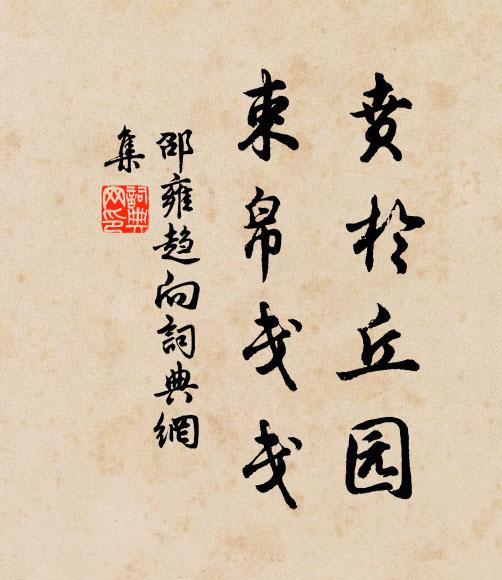 贲於丘园
束帛戋戋
邵雍趋向詞典網
集
詞典
网印